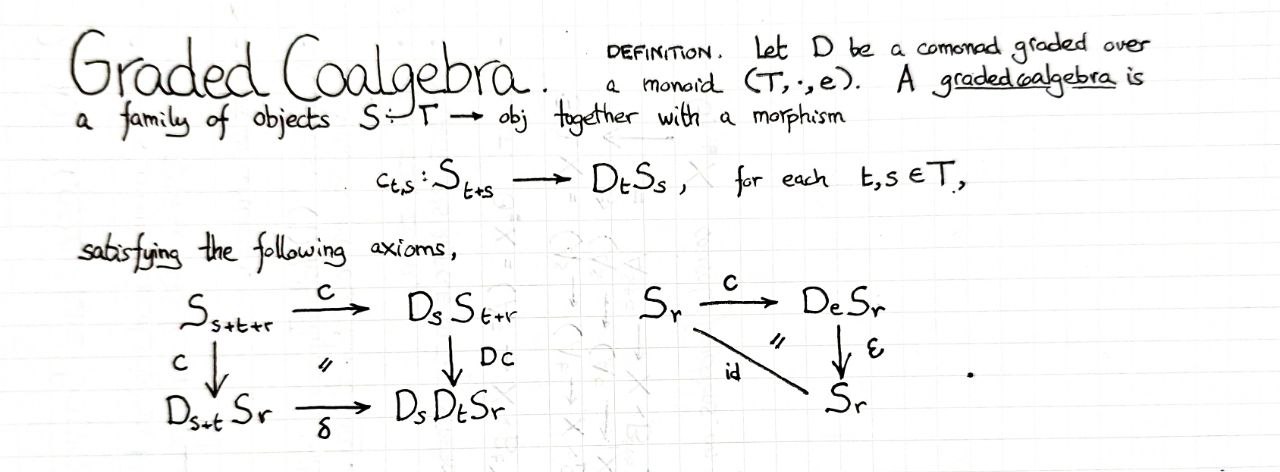 Graded Coalgebra. DEFINITION. Let D be a comonad graded over
a monoid (T, ·, e). A graded coalgebra is
a family of objects S : T → obj together with a morphism
c_{t,s} : S_{t+s} → D_t S_s, for each t,s ∈ T,
satisfying the following axioms,
S_{s+t+r} c → D_s S_{t+r} S_r c → D_e S_r
c ↓ = ↓ Dc id = ↓ ε .
D_{s+t} S_r → δ D_s D_t S_r S_r